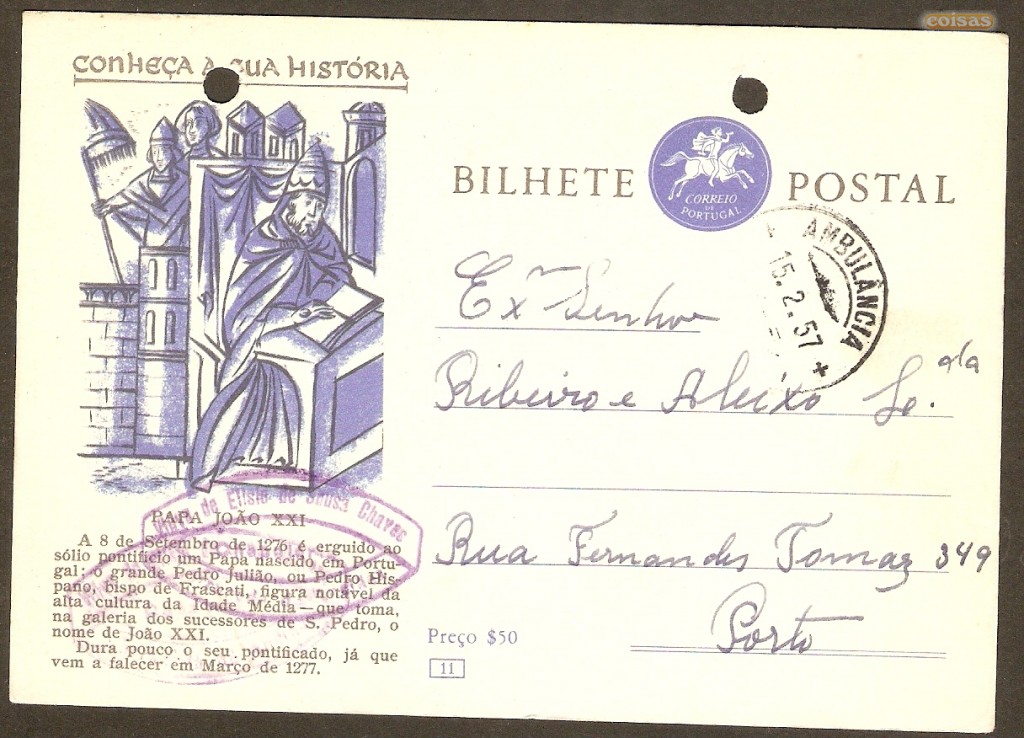 coisas
CONHEÇA A SUA HISTÓRIA
BILHETE POSTAL
CORREIO
DE
PORTUGAL
AMBULÂNCIA
15.2.57
Exmo Senhor
Ribeiro e Aleixo Lda.
Rua Fernandes Tomaz 349
Porto
de Elisio de Sousa Chaves
PAPA JOÃO XXI
A 8 de Setembro de 1276 é erguido ao
sólio pontifício um Papa nascido em Portu-
gal: o grande Pedro Julião, ou Pedro His-
pano, bispo de Frascati, figura notável da
alta cultura da Idade Média — que toma,
na galeria dos sucessores de S. Pedro, o
nome de João XXI.
Dura pouco o seu pontificado, já que
vem a falecer em Março de 1277.
Preço $50
11